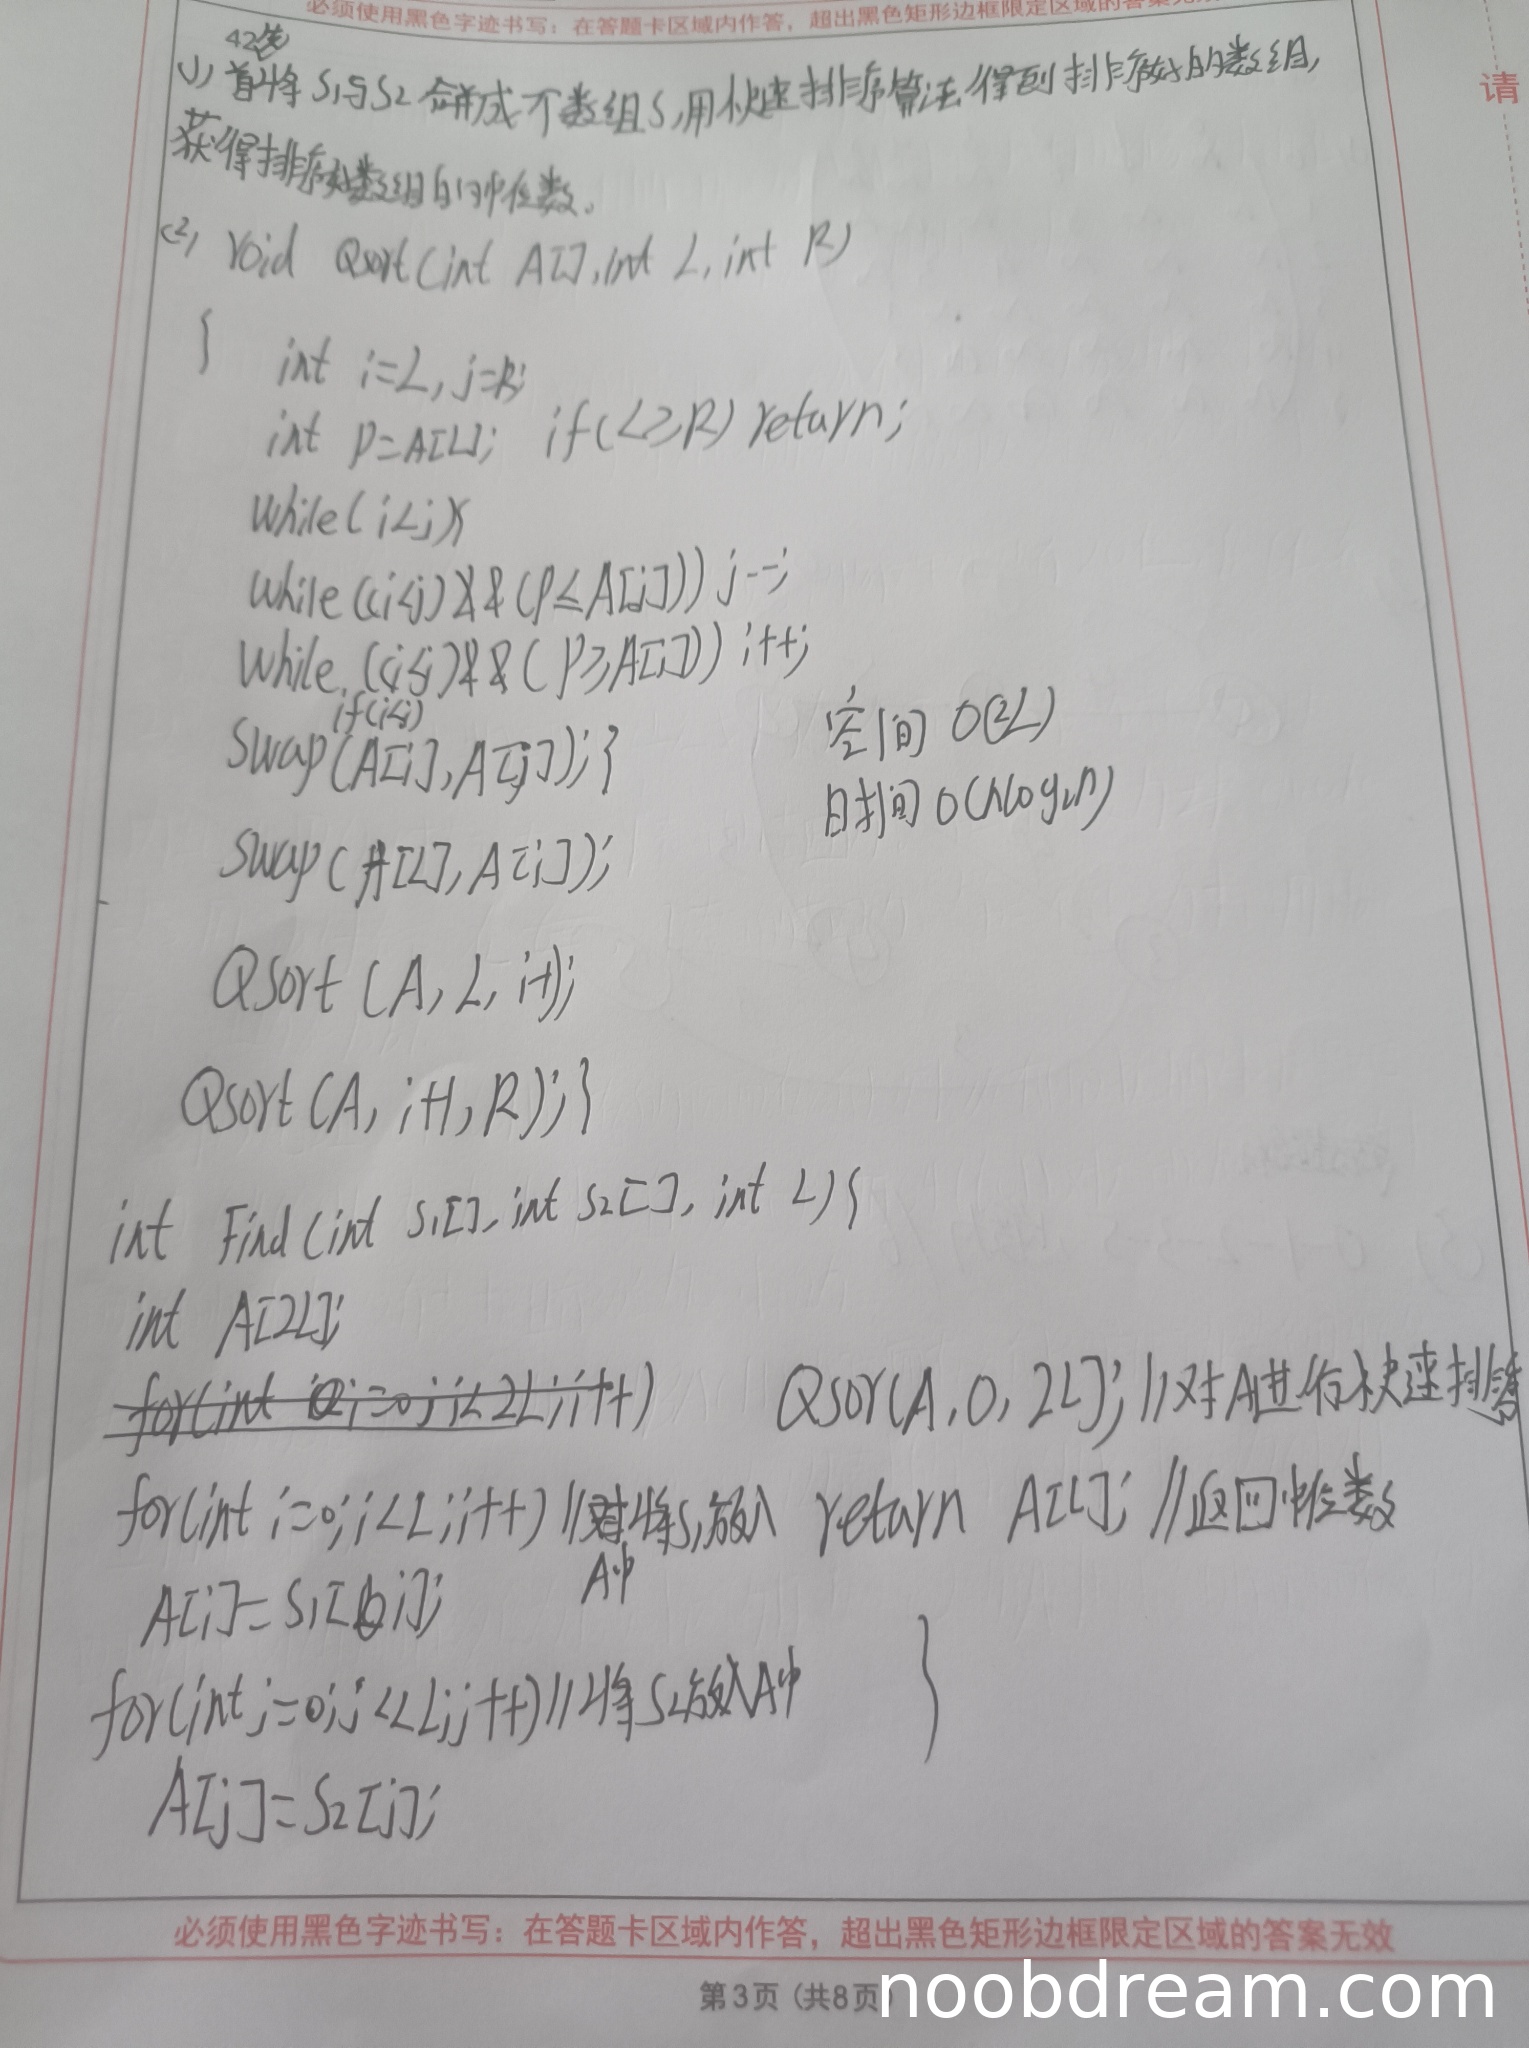 必须使用黑色字迹书写：在答题卡区域内作答，超出黑色矩形边框限定区域的答案无效
请
42答
(1) 首将S1与S2合并成个数组S,用快速排序算法,得到排序好的数组,
获得排序好数组的中位数。
(2) void Qsort(int A[],int L,int R)
{ int i=L,j=R;
int P=A[L]; if(L≥R) return;
while(i<j){
while((i<j)&&(P≤A[j])) j--;
while((i<j)&&(P≥A[i])) i++;
if(i<j)
swap(A[i],A[j]);}
空间 O(2L)
时间 O(nlog₂n)
swap(A[L],A[i]);
Qsort(A,L,i-1);
Qsort(A,i+1,R);}
int Find(int S1[],int S2[],int L){
int A[2L];
for(int i=0;i<2L;i++)
Qsor(A,0,2L); //对A进行快速排序
for(int i=0;i<L;i++) //将S1放入
A中
return A[L]; //返回中位数
A[i]=S1[i];
for(int j=0;j<L;j++) //将S2放入A中
}
A[j]=S2[j];
必须使用黑色字迹书写：在答题卡区域内作答，超出黑色矩形边框限定区域的答案无效
第3页（共8页）
noobdream.com